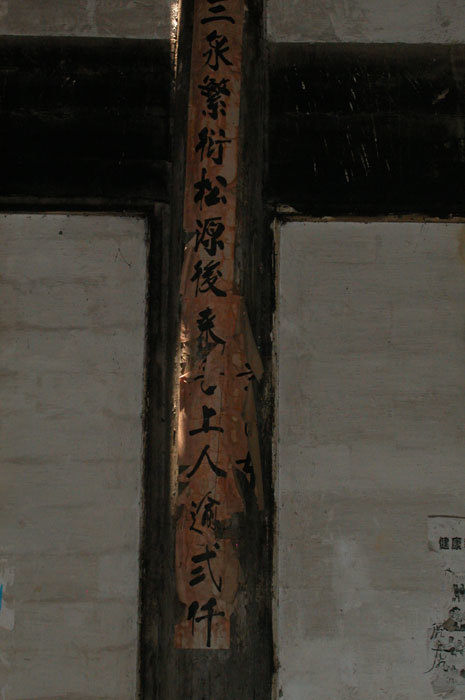 三泉繁衍松源後来
上人逾弍仟
健康